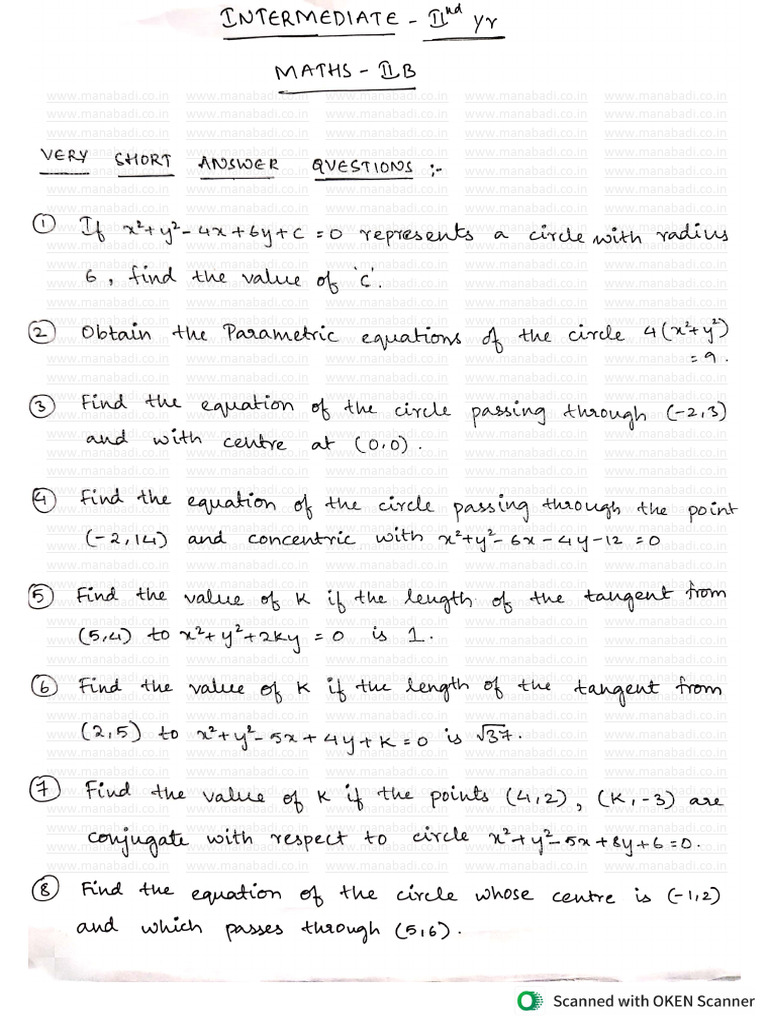 INTERMEDIATE - IInd Yr
MATHS - IIB
www.manabadi.co.in www.manabadi.co.in www.manabadi.co.in www.manabadi.co.in www.manabadi.co.in
VERY SHORT ANSWER QUESTIONS :-
① If x²+y²-4x+6y+c=0 represents a circle with radius
6, find the value of 'c'.
② Obtain the Parametric equations of the circle 4(x²+y²)
=9.
③ Find the equation of the circle passing through (-2,3)
and with centre at (0,0).
④ Find the equation of the circle passing through the point
(-2,14) and concentric with x²+y²-6x-4y-12=0
⑤ Find the value of K if the length of the tangent from
(5,4) to x²+y²+2ky=0 is 1.
⑥ Find the value of K if the length of the tangent from
(2,5) to x²+y²-5x+4y+k=0 is √37.
⑦ Find the value of K if the points (4,2), (K,-3) are
conjugate with respect to circle x²+y²-5x+8y+6=0.
⑧ Find the equation of the circle whose centre is (-1,2)
and which passes through (5,6).
Scanned with OKEN Scanner